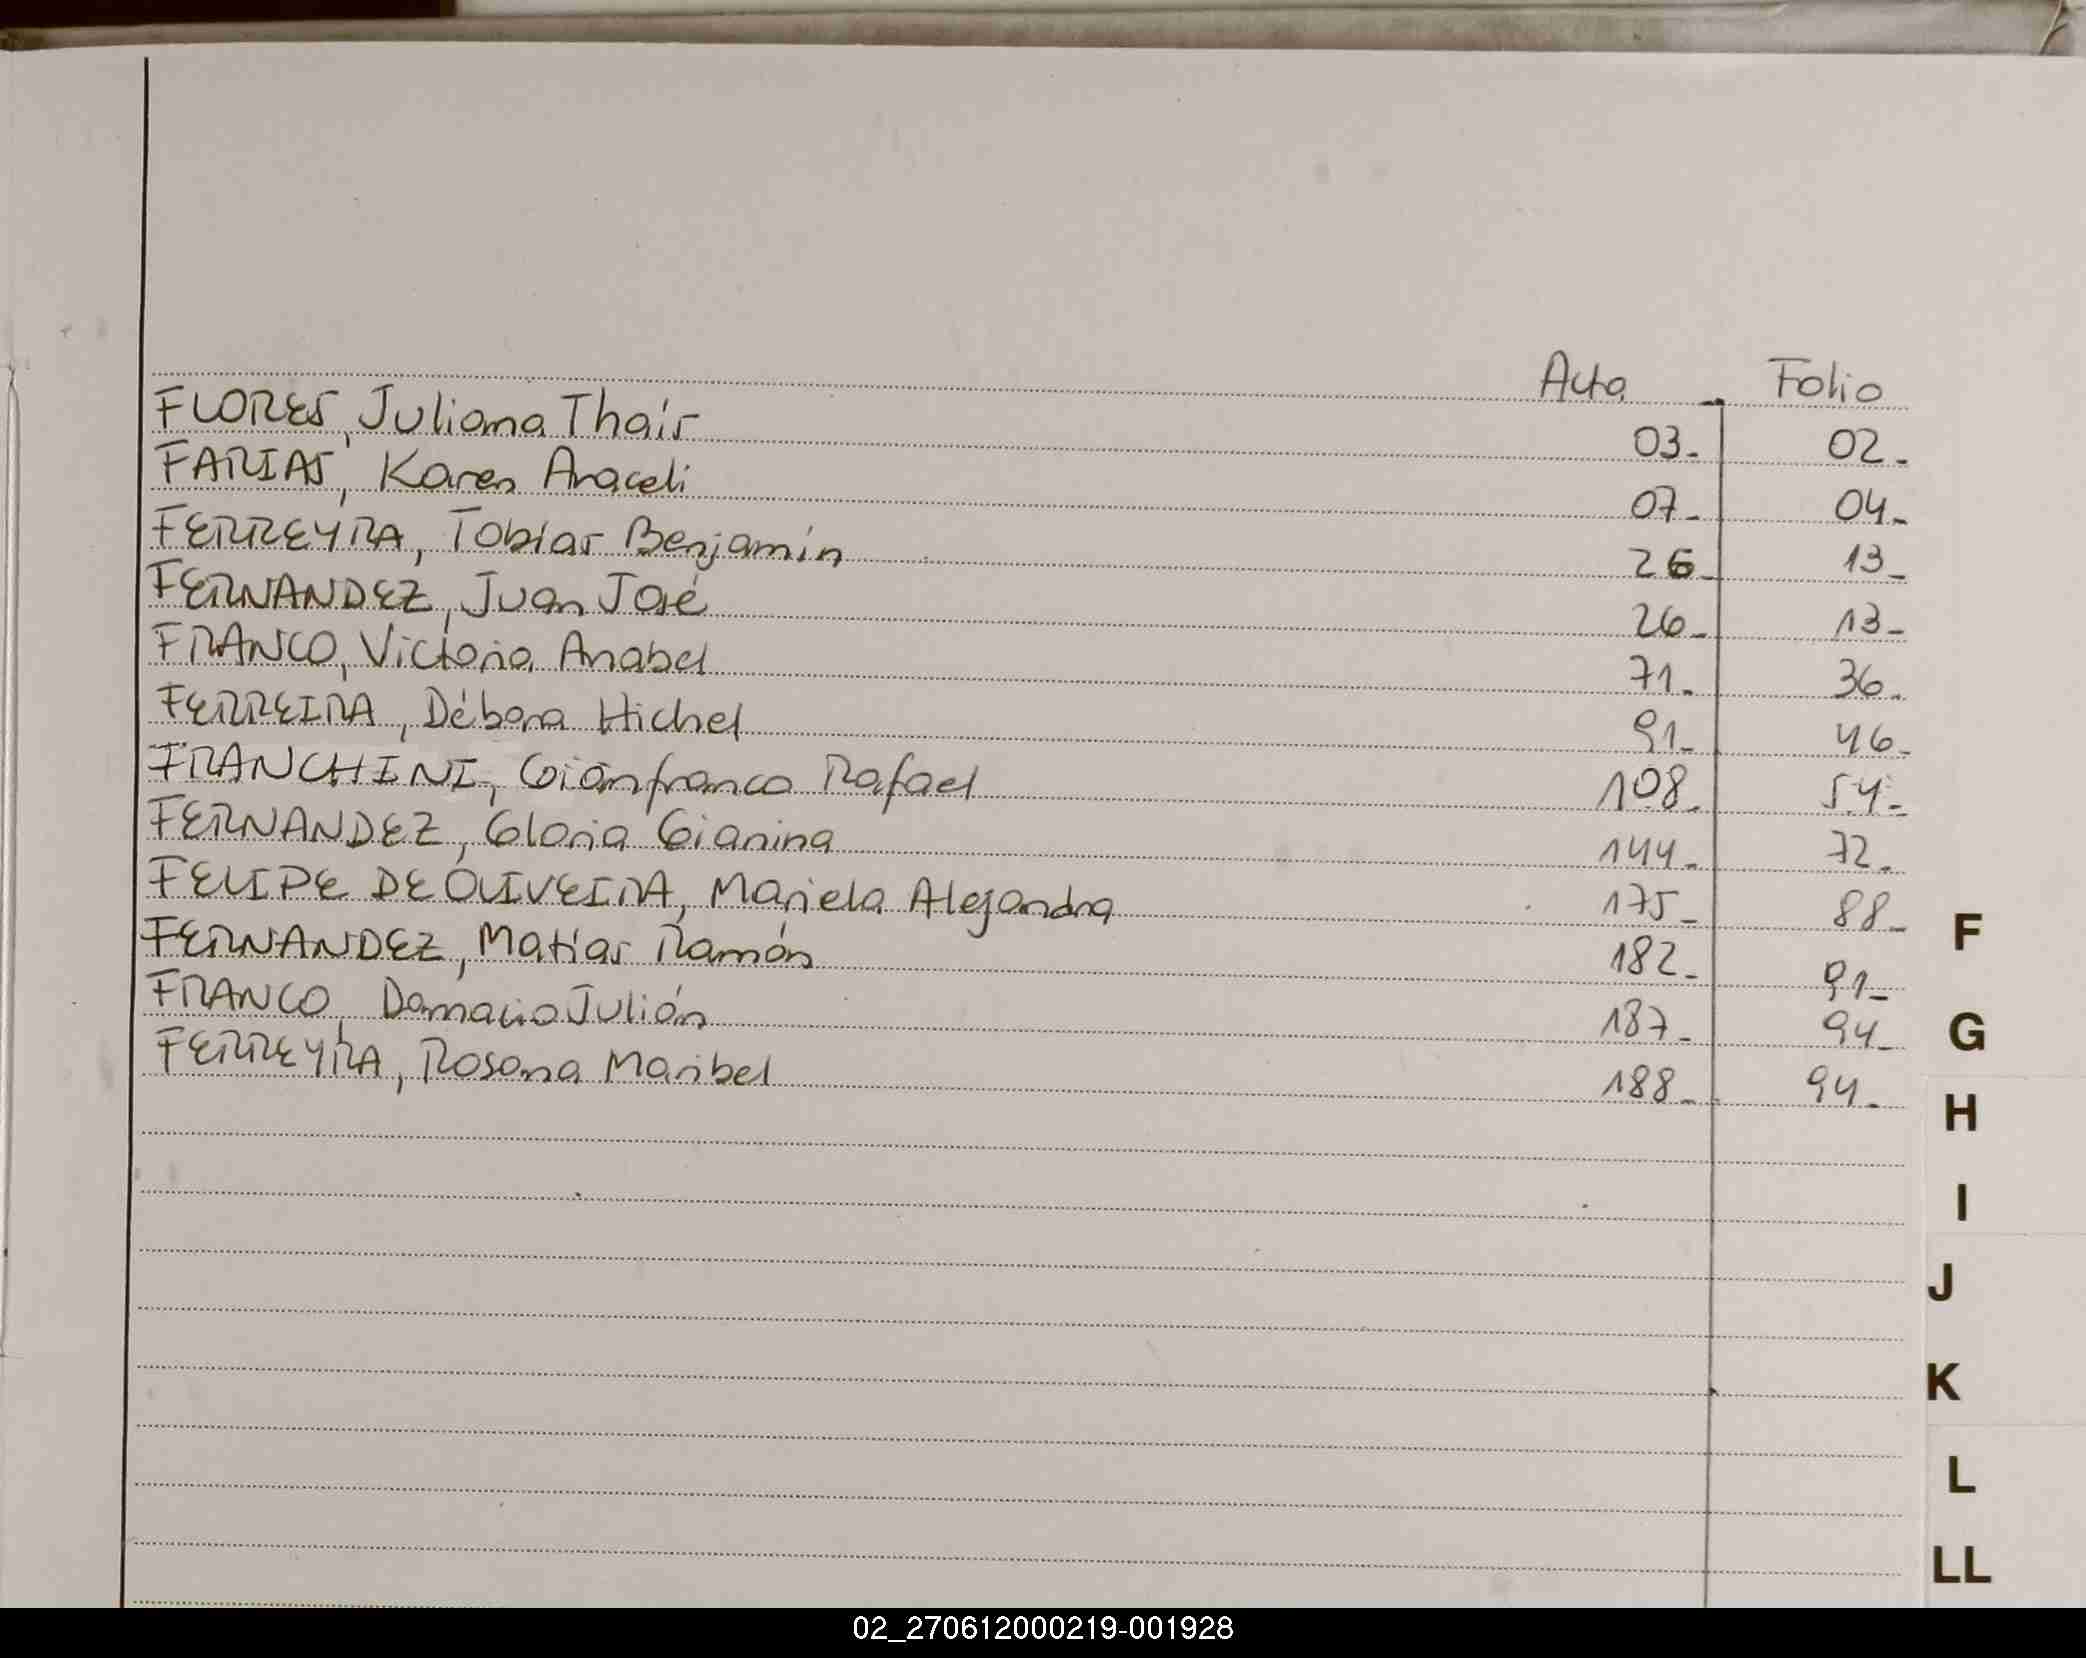 Acta Folio
FLORES, Juliana Thais 03- 02-
FARIAS, Karen Araceli 07- 04-
FERREYRA, Tobias Benjamín 26- 13-
FERNANDEZ, Juan José 26- 13-
FRANCO, Victoria Anabel 71- 36-
FERREIRA, Débora Michel 91- 46-
FRANCHINI, Gianfranco Rafael 108- 54-
FERNANDEZ, Gloria Gianina 144- 72-
FELIPE DE OLIVEIRA, Mariela Alejandra 175- 88-
F
FERNANDEZ, Matías Ramón 182- 91-
FRANCO, Damacio Julián 187- 94-
G
FERREYRA, Rosana Maribel 188- 94-
H
I
J
K
L
LL
02_270612000219-001928